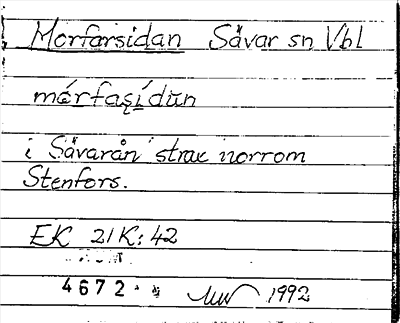 Morfarsidan Sävar sn Vbl
mórfaşídun
i Sävarån strax norrom
Stenfors.
EK 21K:42
4672
1992